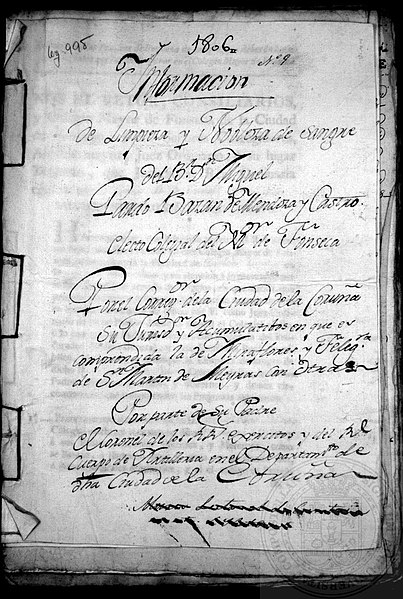 leg. 995
1806
Nº 9
Ynformacion
De Limpieza y Nobleza de sangre
del Br. Dn. Miguel
Pardo Bazan de Mendoza y Castro
electo Colegial del Mor. de Fonseca
Por el Correxor. de la Ciudad de la Coruña
Su Jurisdn. y Acumulativos en que es
comprendida la de Miraflores, y Felegsia
de Sn. Martin de Meyras con otras
Por parte de su Padre
el Coronel de los Rs. Exercitos y del Rl.
Cuerpo de Artilleria en el Departamto. de
dha Ciudad de la Coruña